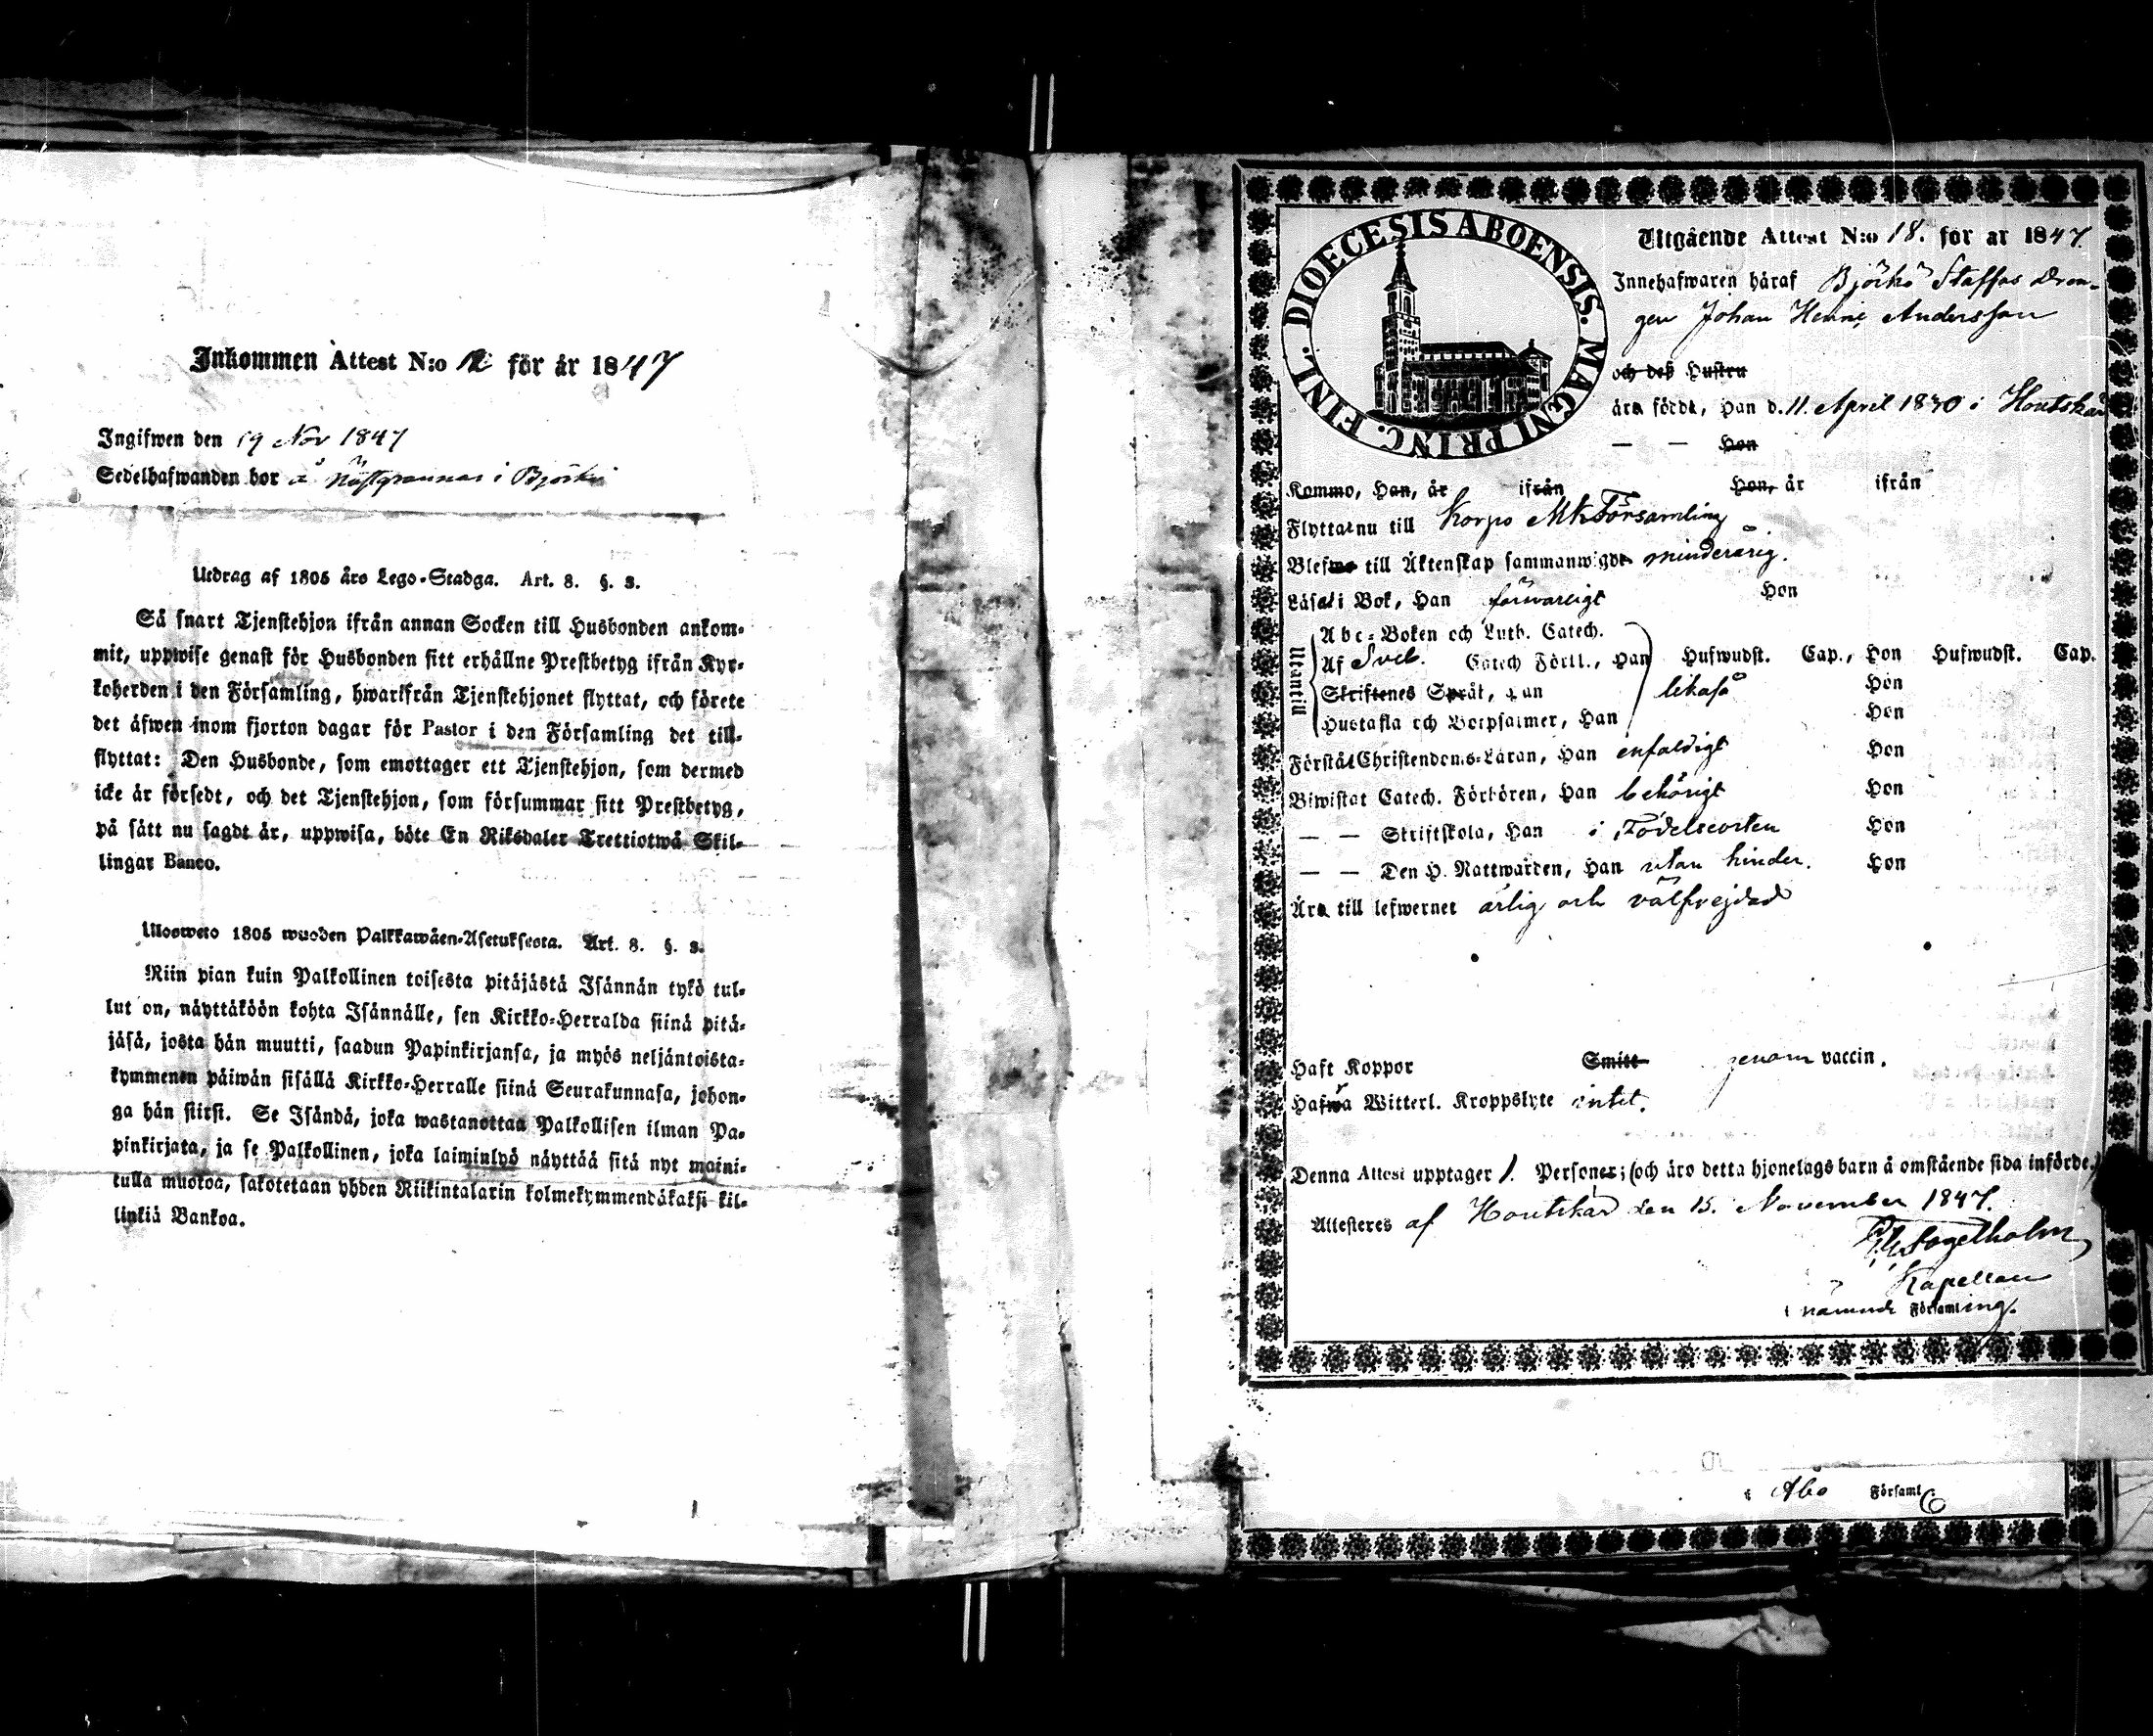 Inkommen Attest N:o 12 för år 1847
Ingifwen den 19 Nov 1847
Sedelhafwanden bor å Nästgrannas i Björkö
Utdrag af 1805 åro Lego-Stadga. Art. 8. §. 3.
Så snart Tjenstehjon ifrån annan Socken till Husbonden ankom-
mit, uppwise genast för Husbonden sitt erhållne Prestbetyg ifrån Kyr-
koherden i den Församling, hwarifrån Tjenstehjonet flyttat, och förete
det äfwen inom fjorton dagar för Pastor i den Församling det till-
flyttat: Den Husbonde, som emottager ett Tjenstehjon, som dermed
icke är försedt, och det Tjenstehjon, som försummar sitt Prestbetyg,
på sätt nu sagdt är, uppwisa, böte En Riksdaler Trettiotwå Skil-
lingar Banco.
Ulosweto 1805 wuoden Palkkawäen-Asetuksesta. Art. 8. §. 3.
Niin pian kuin Palkollinen toisesta pitäjästä Isännän tykö tul-
lut on, näyttäköön kohta Isännälle, sen Kirkko-Herralda siinä pitä-
jäsä, josta hän muutti, saadun Papinkirjansa, ja myös neljäntoista-
kymmenen päiwän sisällä Kirkko-Herralle siinä Seurakunnasa, johon-
ga hän siirsi. Se Isändä, joka wastanottaa Palkollisen ilman Pa-
pinkirjata, ja se Palkollinen, joka laiminlyö näyttää sitä nyt maini-
tulla muotoa, sakotetaan yhden Riikintalarin kolmekymmendäkaksi kil-
linkiä Bankoa.
DIOECESIS ABOENSIS. MAGNI PRINC. FINL.
Utgående Attest N:o 18. för år 1847.
Innehafwaren häraf Björkö Staffas Drän-
gen Johan Henric Andersson
och deß Hustru
äro födde, Han d. 11 April 1830 i Houtskär
— — Hon
Kommo, Han, år ifrån Hon, år ifrån
Flyttat nu till Korpo MkFörsamling
Blefwo till Äktenskap sammanwigde minderårig.
Läsa i Bok, Han försvarligt Hon
Utantill
Abc-Boken och Luth. Catech.
Af Sveb. Catech Förkl., Han Hufwudst. Cap., Hon Hufwudst. Cap.
Skriftenes Språk, Han likaså Hon
Hustafla och Botpsalmer, Han Hon
Förstå Christendoms-Läran, Han enfaldigt Hon
Biwistat Catech. Förhören, Han behörigt Hon
— — Skriftskola, Han i Födelseorten Hon
— — Den H. Nattwarden, Han utan hinder. Hon
Äro till lefwernet ärlig och välfrejdad
Haft Koppor Smitt genom vaccin.
Hafwa Witterl. Kroppslyte intet.
Denna Attest upptager 1. Personer; (och äro detta hjonelags barn å omstående sida införde.)
Attesteres af Houtskär den 15. November 1847.
Fogelholm
Kapellan
i nämnde Församling.
i Åbo Församl